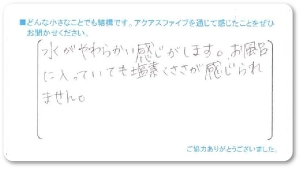 ■どんな小さなことでも結構です、アクアスファイブを通じて感じたことをぜひ
お聞かせください。
水がやわらかい感じがします。お風呂
に入っていても塩素くささが感じられ
ません。
ご協力ありがとうございました。